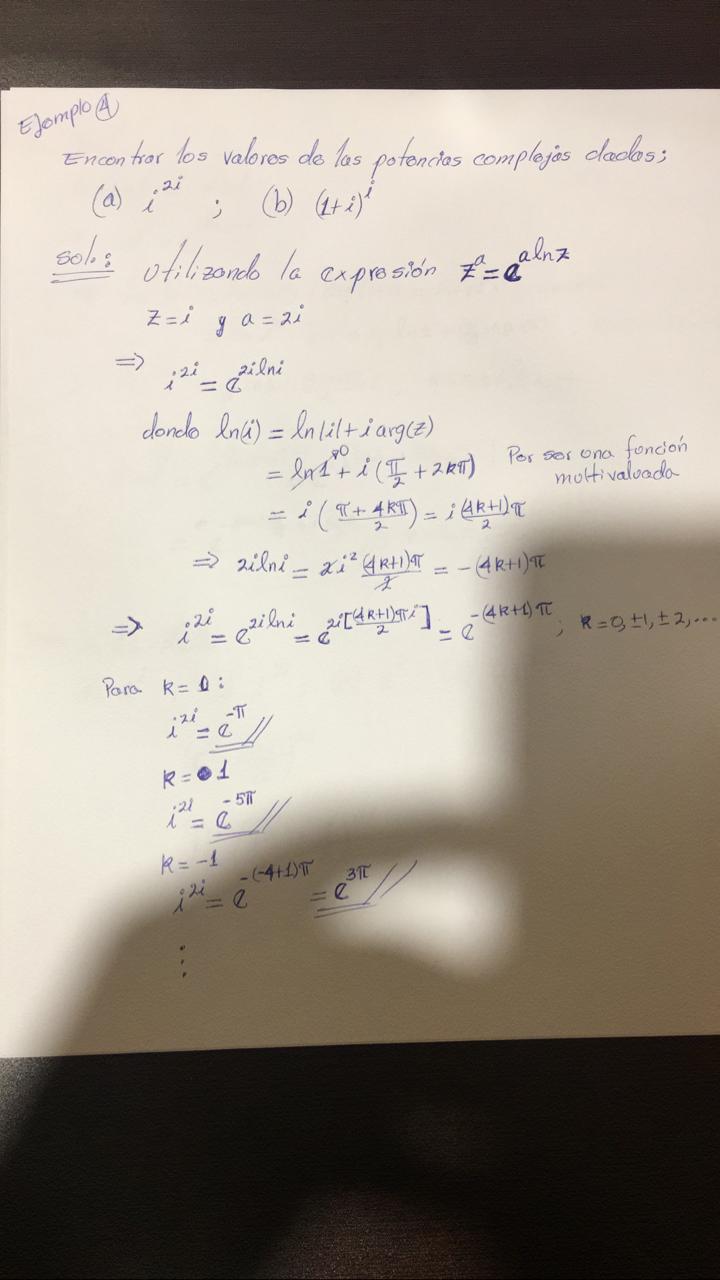 Ejemplo ④
Encontrar los valores de las potencias complejas dadas;
(a) i^{2i} ; (b) (1+i)^i
sol.: Utilizando la expresión z^a = e^{a ln z}
z = i y a = 2i
⇒ i^{2i} = e^{2i ln i}
donde ln(i) = ln|i| + i arg(z)
= ln 1^{→0} + i (π/2 + 2kπ) Por ser una función
multivaluada
= i ((π + 4kπ)/2) = i (4k+1)π/2
⇒ 2i ln i = 2i² (4k+1)π/2 = -(4k+1)π
⇒ i^{2i} = e^{2i ln i} = e^{2i[(4k+1)π i/2]} = e^{-(4k+1)π} ; k = 0, ±1, ±2, ...
Para k = 0 :
i^{2i} = e^{-π} //
k = 1
i^{2i} = e^{-5π} //
k = -1
i^{2i} = e^{-(-4+1)π} = e^{3π} //
⋮